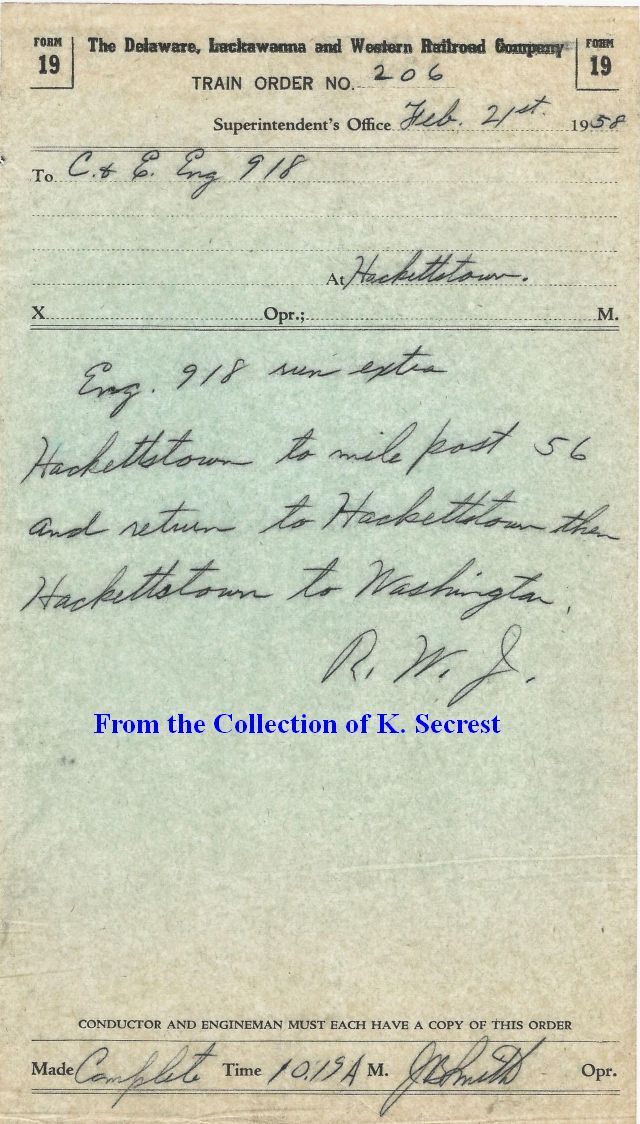 FORM 19 The Delaware, Lackawanna and Western Railroad Company FORM 19
TRAIN ORDER NO. 206
Superintendent's Office Feb. 21st. 1958
To C. & E. Eng 918
At Hackettstown.
X Opr.; M.
Eng. 918 run extra
Hackettstown to mile post 56
and return to Hackettstown then
Hackettstown to Washington.
R. W. J.
From the Collection of K. Secrest
CONDUCTOR AND ENGINEMAN MUST EACH HAVE A COPY OF THIS ORDER
Made Complete Time 10:19 A M. JB Smith Opr.